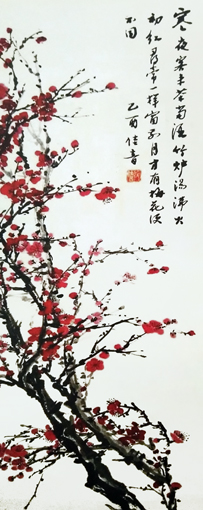 寒夜客来茶當酒竹炉湯沸火
初红尋常一樣窗前月才有梅花便
不同
乙酉佳音